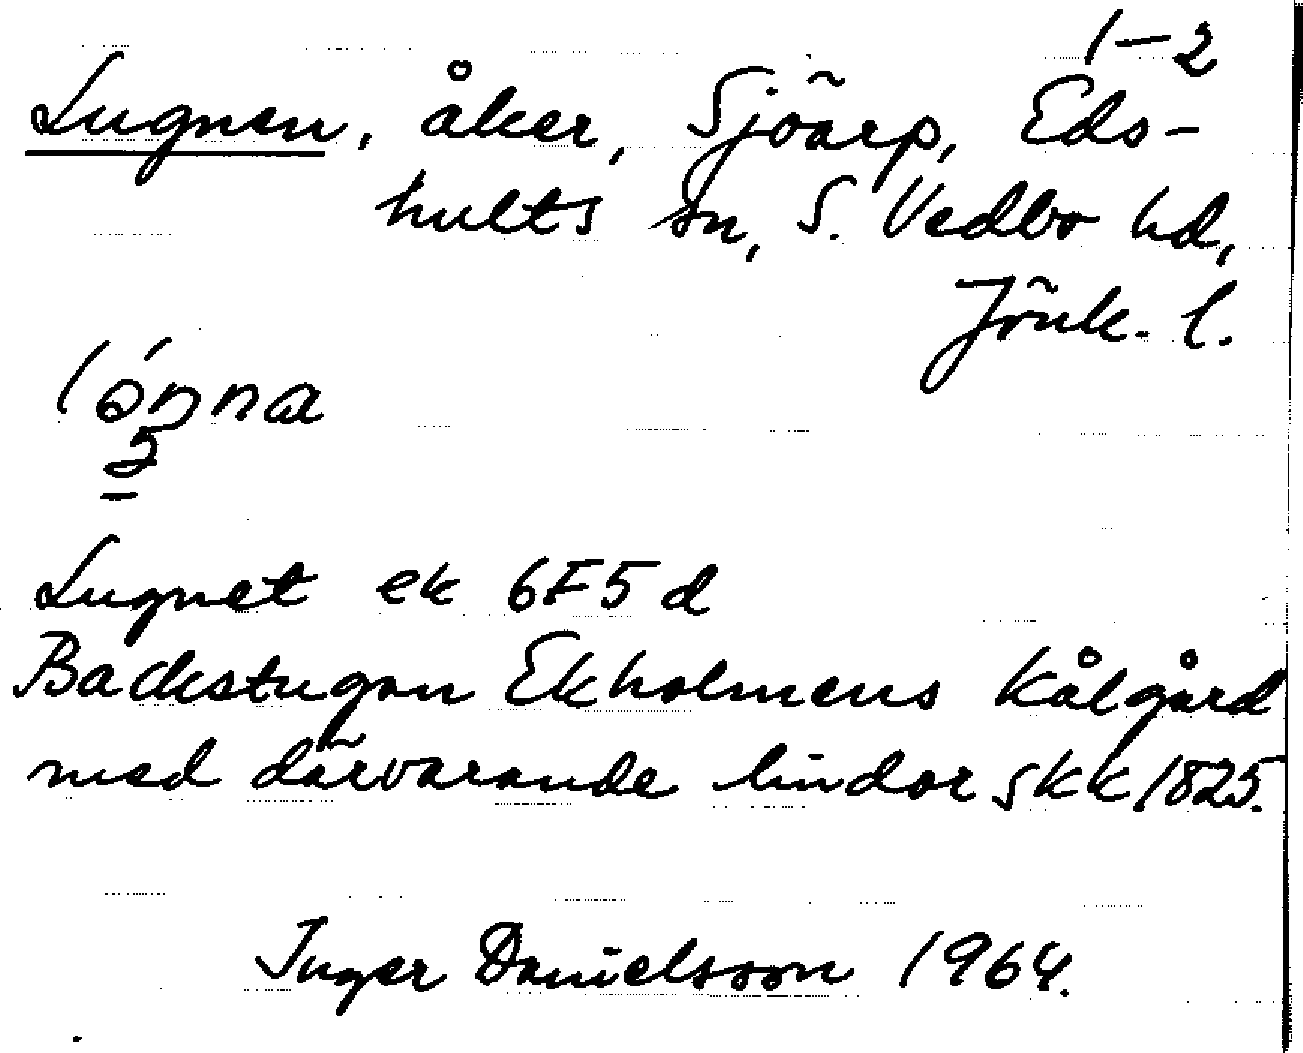 1-2
Lugnen, åker, Sjöarp, Eds-
hults sn, S. Vedbo hd,
Jönk. l.
Lugnet ek 6F5d
Backstugan Ekholmens Kålgård
med därvarande lindor skk 1825.
Inger Danielsson 1964.